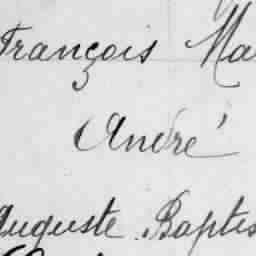 François Ma
André
Auguste Baptis